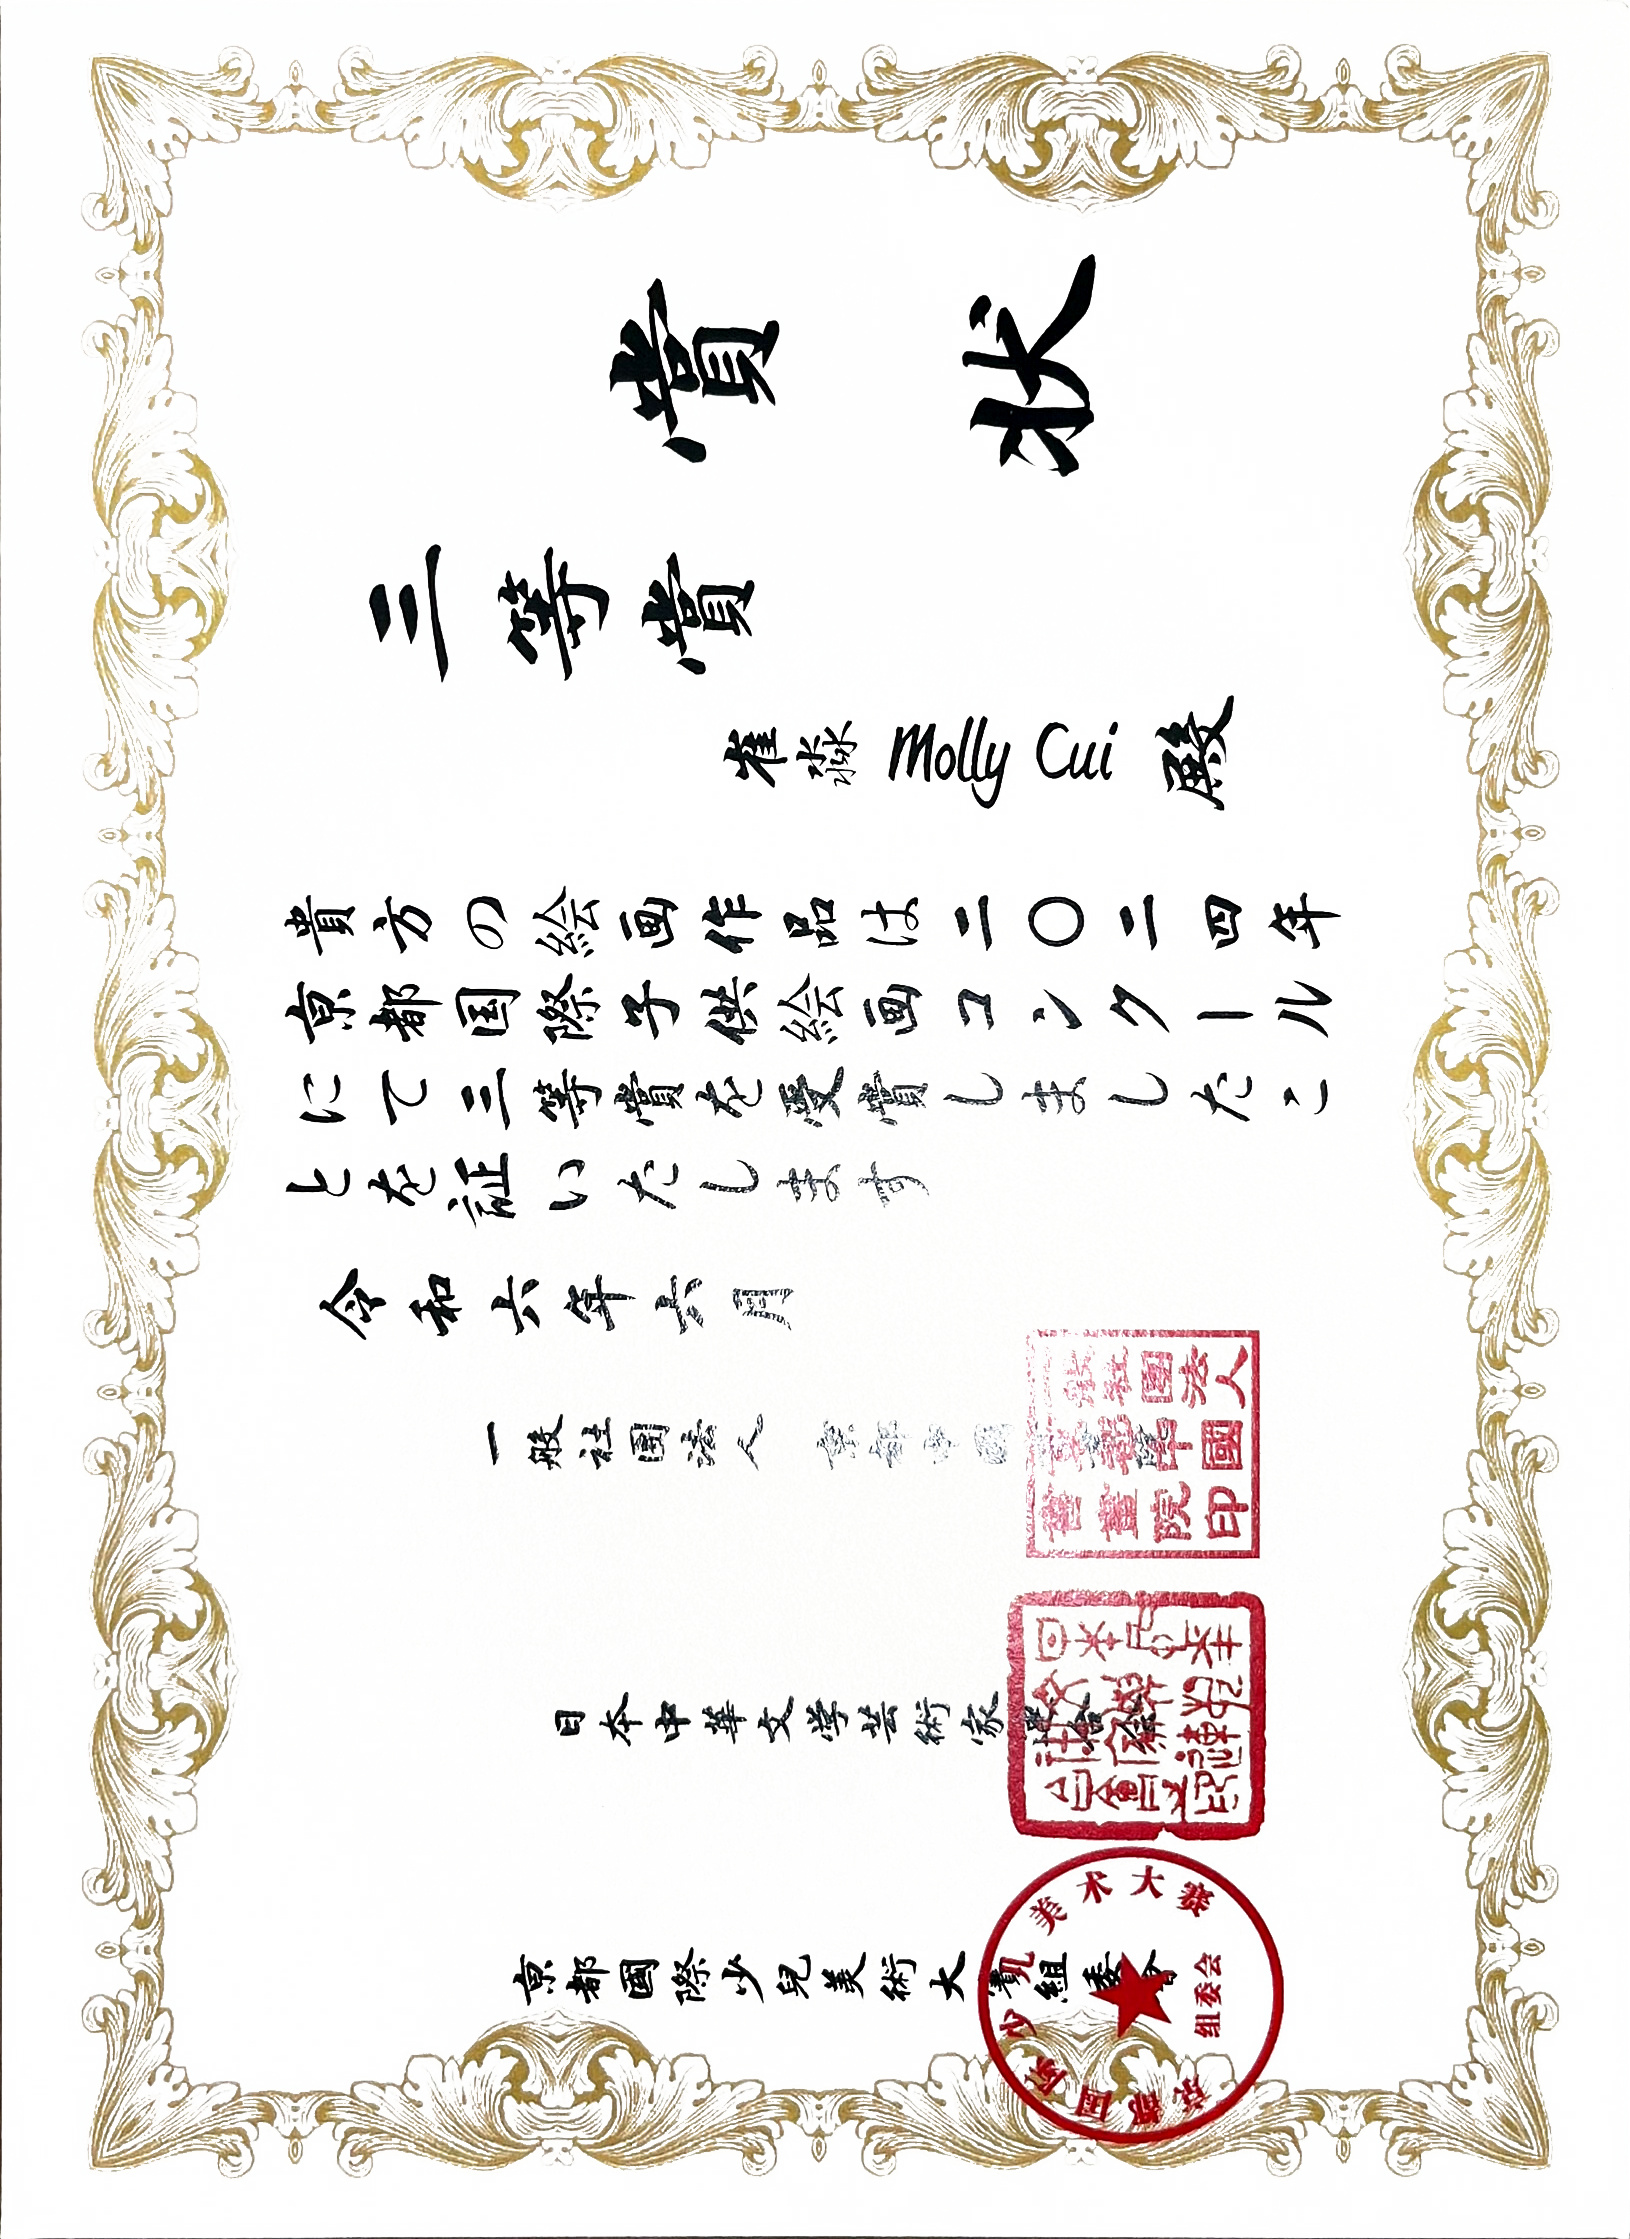 賞状
三等賞
崔淼 Molly Cui 殿
貴方の絵画作品は二〇二四年
京都国際子供絵画コンクール
にて三等賞を受賞しましたこ
とを証いたします
令和六年六月
一般社団法人 京都中国
一般社團法人
中國
書畫院印
日本中華文学芸術家
京都國際少兒美術大賽組委会
京都国际少儿美术大赛
组委会